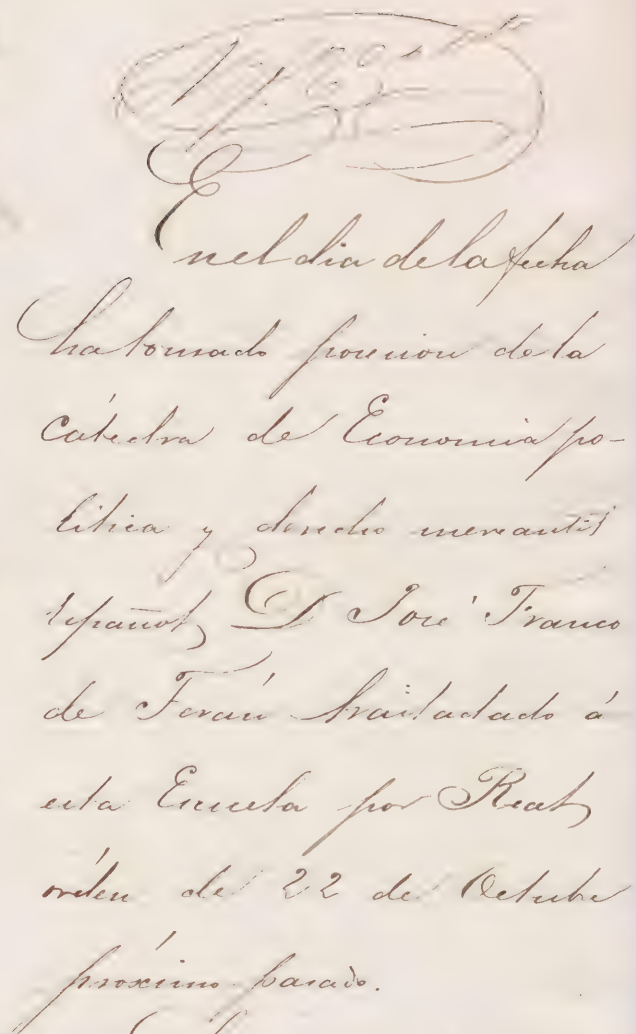 En el dia de la fecha
ha tomado posesion de la
cátedra de Economia po-
litica y derecho mercantil
Español, D. José Franco
de Terán trasladado á
esta Escuela por Real
órden de 22 de Octubre
próximo pasado.